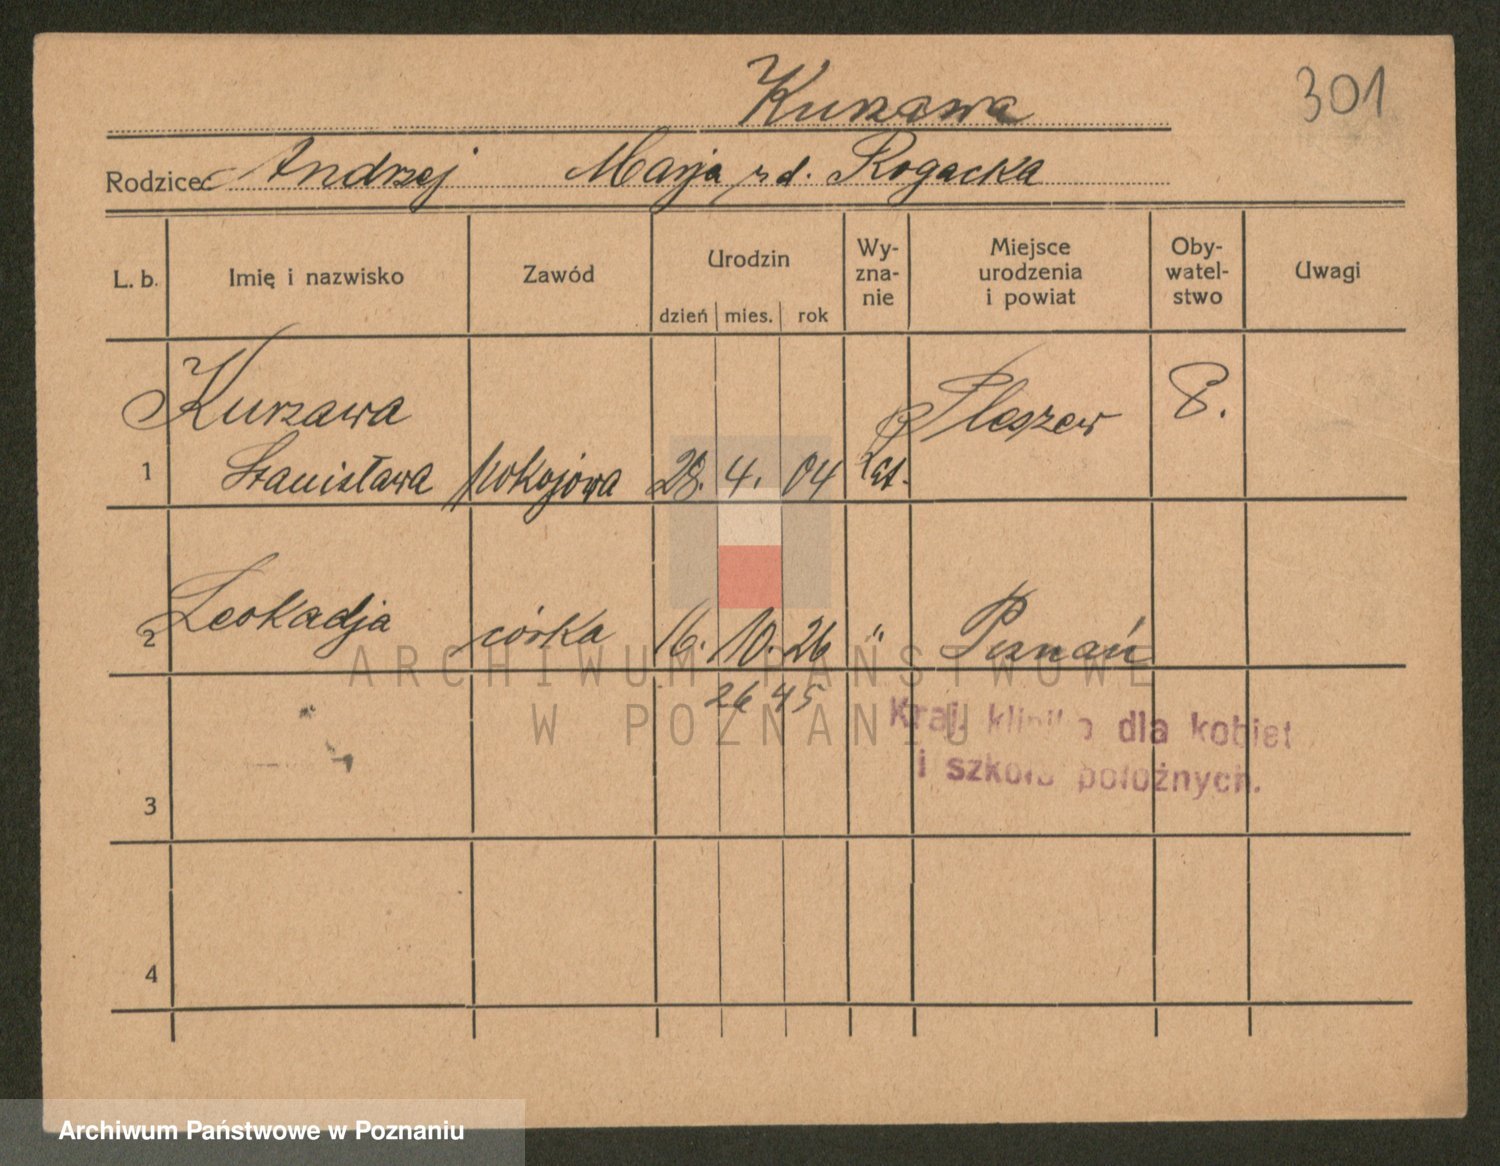 Kurzawa
301
Rodzice: Andrzej Marja rd. Rogacka
L. b. Imię i nazwisko Zawód Urodzin dzień mies. rok Wy-zna-nie Miejsce urodzenia i powiat Oby-watel-stwo Uwagi
Kurzawa Pleszew P.
1 Stanisława pokojowa 28. 4. 04 kat.
2 Leokadja córka 16. 10. 26 " Poznań
26 45
ARCHIWUM PAŃSTWOWE
W POZNANIU
Kraj. klinika dla kobiet
i szkoła położnych.
3
4
Archiwum Państwowe w Poznaniu